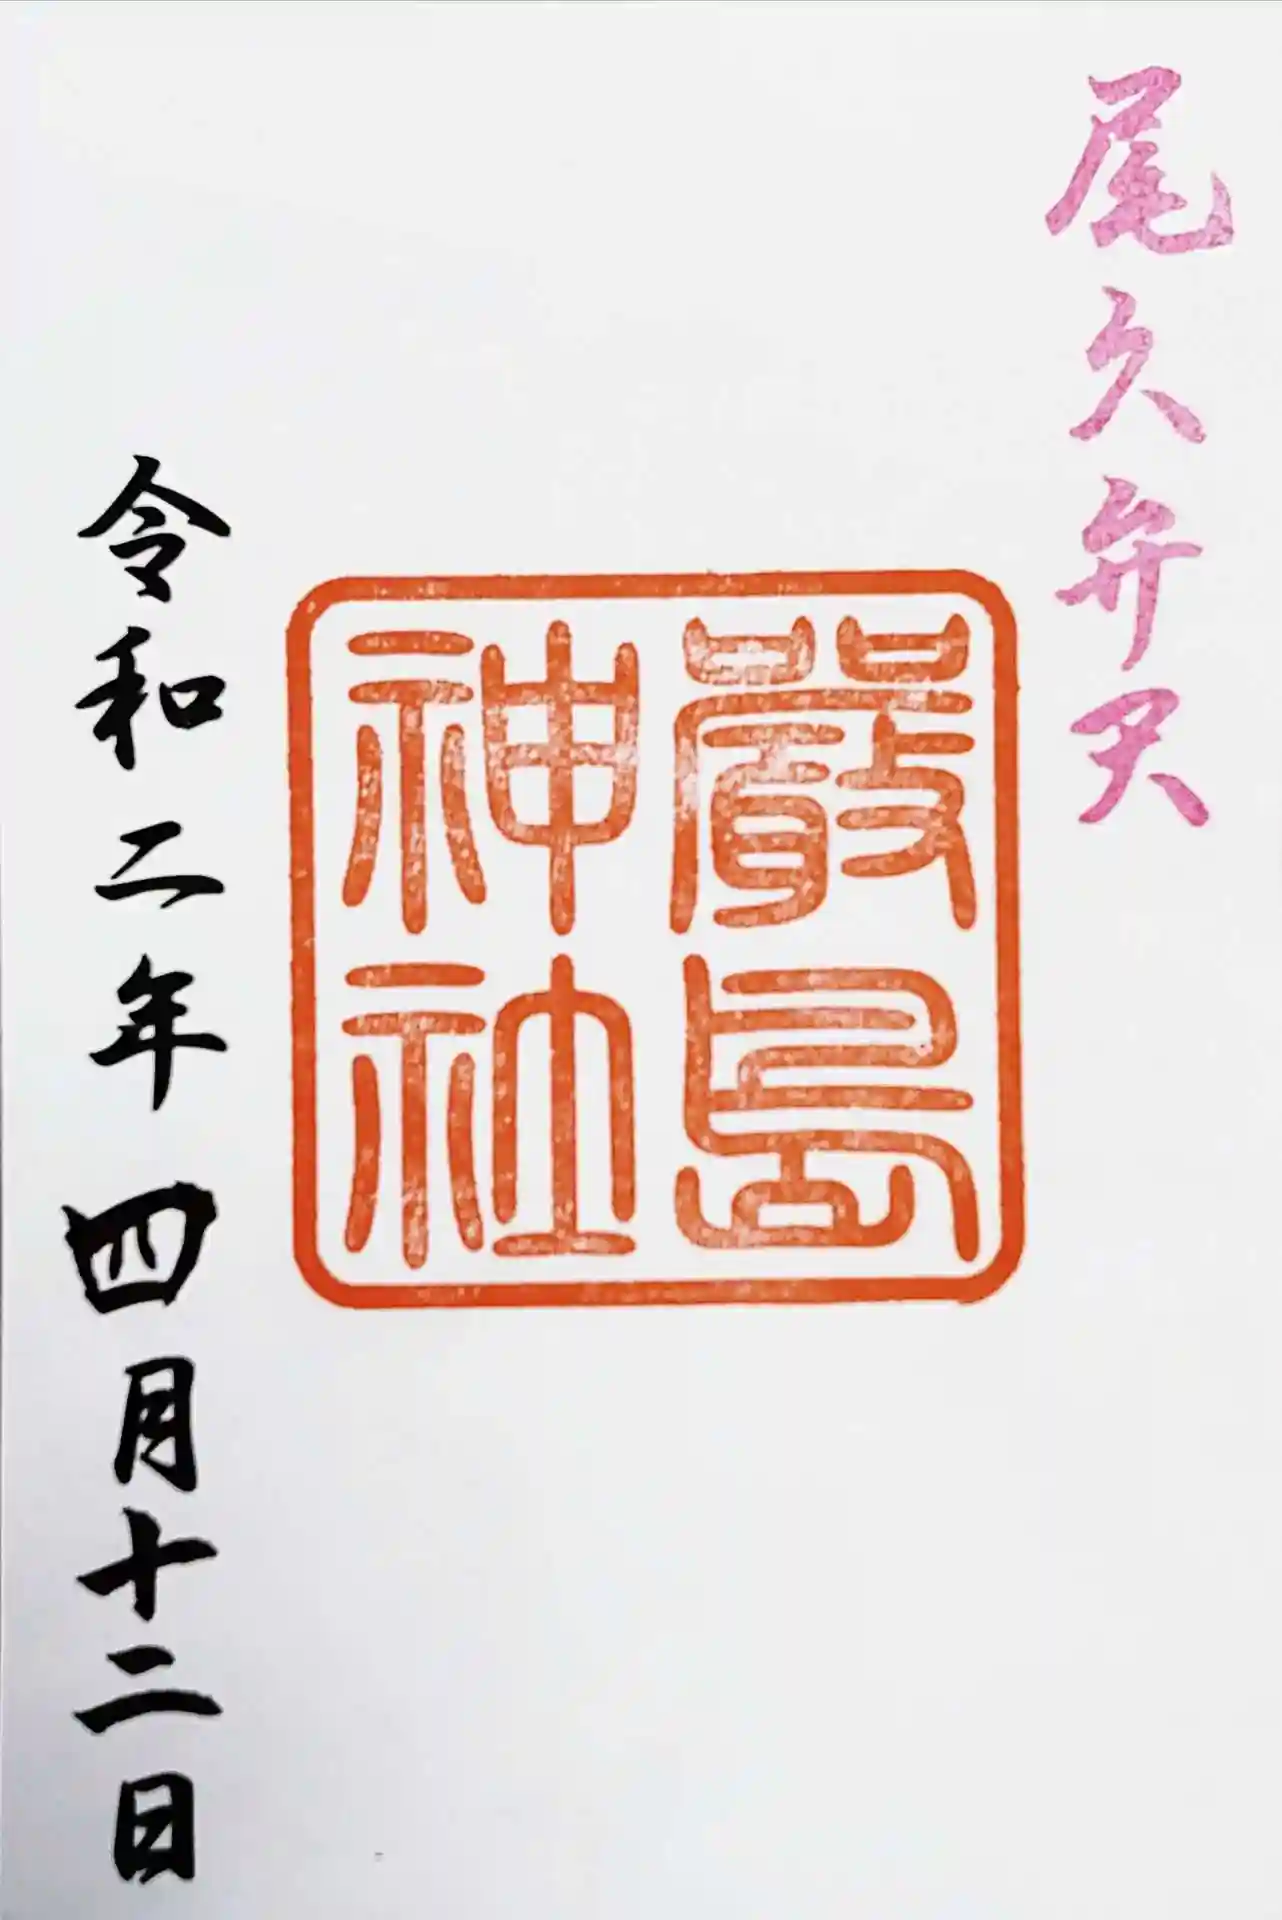 尾久弁天
嚴島
神社
令和二年四月十二日